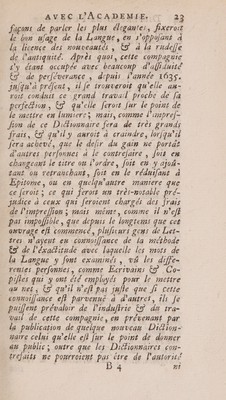 AVEC L'ACADEMIE. 23
façons de parler les plus élegantes, fixeroit
le bon usage de la Langue, en s'opposant à
la licence des nouveautés, & à la rudesse
de l'antiquité. Après quoi, cette compagnie
s'y étant occupée avec beaucoup d'assiduité
& de perséverance, depuis l'année 1635.
jusqu'à présent, il se trouveroit qu'elle au-
roit conduit ce grand travail proche de sa
perfection, & qu'elle seroit sur le point de
le mettre en lumiere; mais, comme l'impres-
sion de ce Dictionnaire sera de très grands
frais, & qu'il y auroit à craindre, lorsqu'il
sera achevé, que le desir du gain ne portât
d'autres personnes à le contrefaire, soit en
changeant le titre ou l'ordre, soit en y ajoû-
tant ou retranchant, soit en le réduisant à
Epitome, ou en quelqu'autre maniere que
ce seroit; ce qui feroit un très-notable pré-
judice à ceux qui seroient chargés des frais
de l'impression; mais même, comme il n'est
pas impossible, que depuis le longtems que cet
ouvrage est commencé, plusieurs gens de Let-
tres n'ayent eu connoissance de la méthode
& de l'éxactitude avec laquelle les mots de
la Langue y sont éxaminés, vû les diffe-
rentes personnes, comme Ecrivains & Co-
pistes qui y ont été employés pour le mettre
au net, & qu'il n'est pas juste que si cette
connoissance est parvenuë à d'autres, ils se
puissent prévaloir de l'industrie & du tra-
vail de cette compagnie, en prévenant par
la publication de quelque nouveau Diction-
naire celui qu'elle est sur le point de donner
au public; outre que les Dictionnaires con-
trefaits ne pourroient pas être de l'autorité
B 4 ni